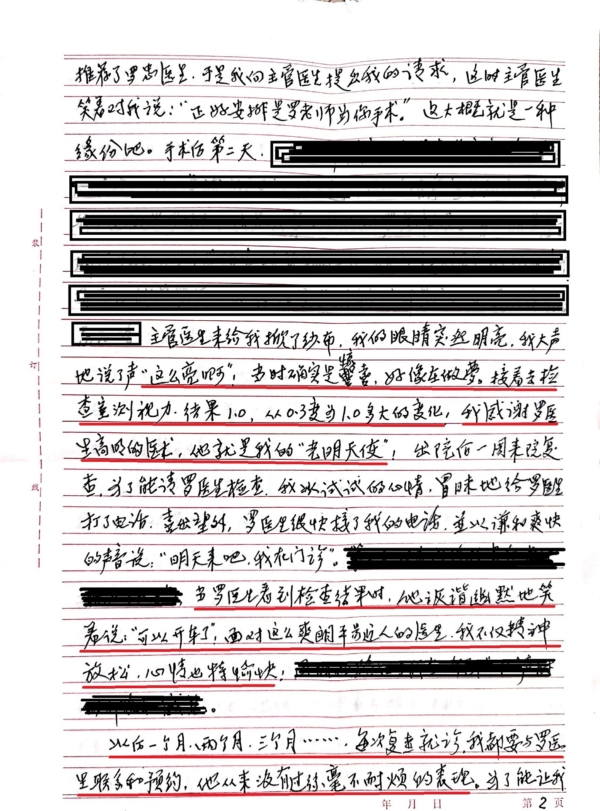 推荐了罗忠医生,于是我向主管医生提出我的请求,这时主管医生
笑着对我说:“正好安排是罗老师当你手术。”这大概就是一种
缘份吧。手术后第二天,
主管医生来给我掀了纱布,我的眼睛突然明亮,我大声
地说了声“这么亮啊”,当时确实是惊喜,好像在做夢。接着去检
查室测视力,结果1.0,从0.3变为1.0多大的变化,我感谢罗医
生高明的医术,他就是我的“光明天使”,出院后一周来院复
查,为了能请罗医生检查,我以试试的心情,冒昧地给罗医生
打了电话,喜出望外,罗医生很快接了我的电话,並以谦和爽快
的声音说:“明天来吧,我在门诊”。
当罗医生看到检查结果时,他诙谐幽默地笑
着说:“可以开车了”,面对这么爽朗平易近人的医生,我不仅精神
放松,心情也特愉快;
。
以后一个月、两个月、三个月……,每次复查就诊,我都要与罗医
生联系和预约,他从来没有过丝毫不耐烦的表现。为了能让我
装
订
线
年 月 日
第 2 页